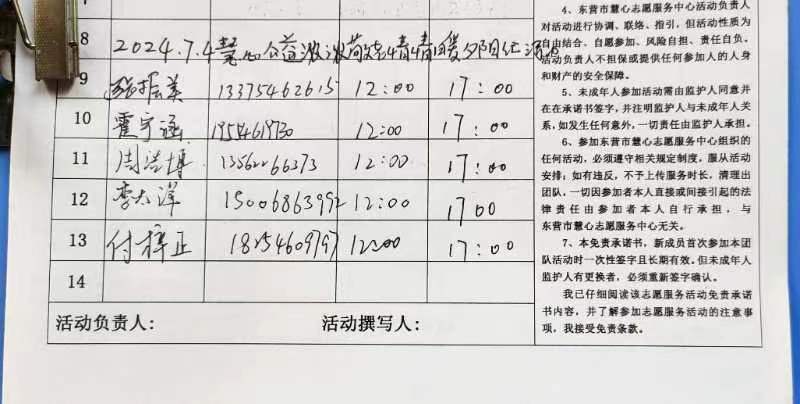 8 2024.7.4慧心公益
9 张振美 13375462615 12:00 17:00
10 霍宇涵 19554619730 12:00 17:00
11 周浩博 13562266373 12:00 17:00
12 李太洋 15006863992 12:00 1700
13 付梓正 18254609797 12:00 17:00
14
活动负责人: 活动撰写人:
4、东营市慧心志愿服务中心活动负责人
对活动进行协调、联络、指引,但活动性质为
自由结合、自愿参加、风险自担、责任自负。
活动负责人不担保或提供任何参加人的人身
和财产的安全保障。
5、未成年人参加活动需由监护人同意并
在在承诺书签字,并注明监护人与未成年人关
系,如发生任何意外,一切责任由监护人承担。
6、参加东营市慧心志愿服务中心组织的
任何活动,必须遵守相关规定制度,服从活动
安排;如有违反,不予上传服务时长,清理出
团队,一切因参加者本人直接或间接引起的法
律责任由参加者本人自行承担,与
东营市慧心志愿服务中心无关。
7、本免责承诺书,新成员首次参加本团
队活动时一次性签字且长期有效。但未成年人
监护人有更换者,必须重新签字确认。
我已仔细阅读该志愿服务活动免责承诺
书内容,并了解参加志愿服务活动的注意事
项,我接受免责条款。